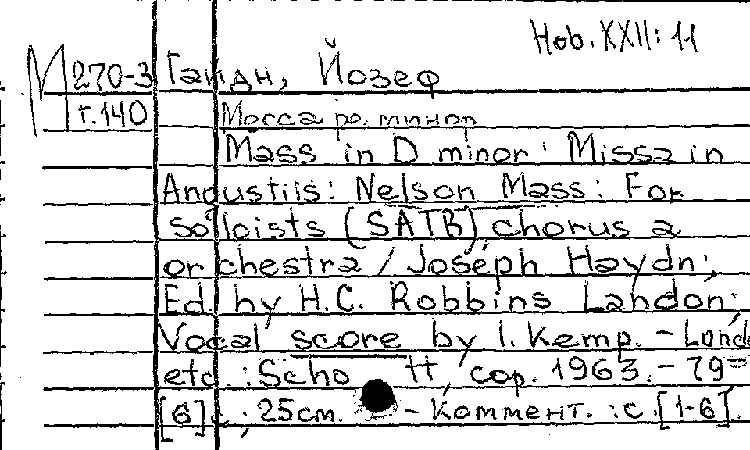 Hob. XXII: 11
М 270-3 Гайдн, Йозеф
г.140 Месса ре минор
Mass in D minor: Missa in
Angustiis: Nelson Mass: For
soloists (SATB), chorus a
orchestra / Joseph Haydn;
Ed. by H.C. Robbins Landon;
Vocal score by I. Kemp. - Lond
etc.: Schott, cop. 1963. - 79
[6] с.; 25см. - Коммент.: с. [1-6].